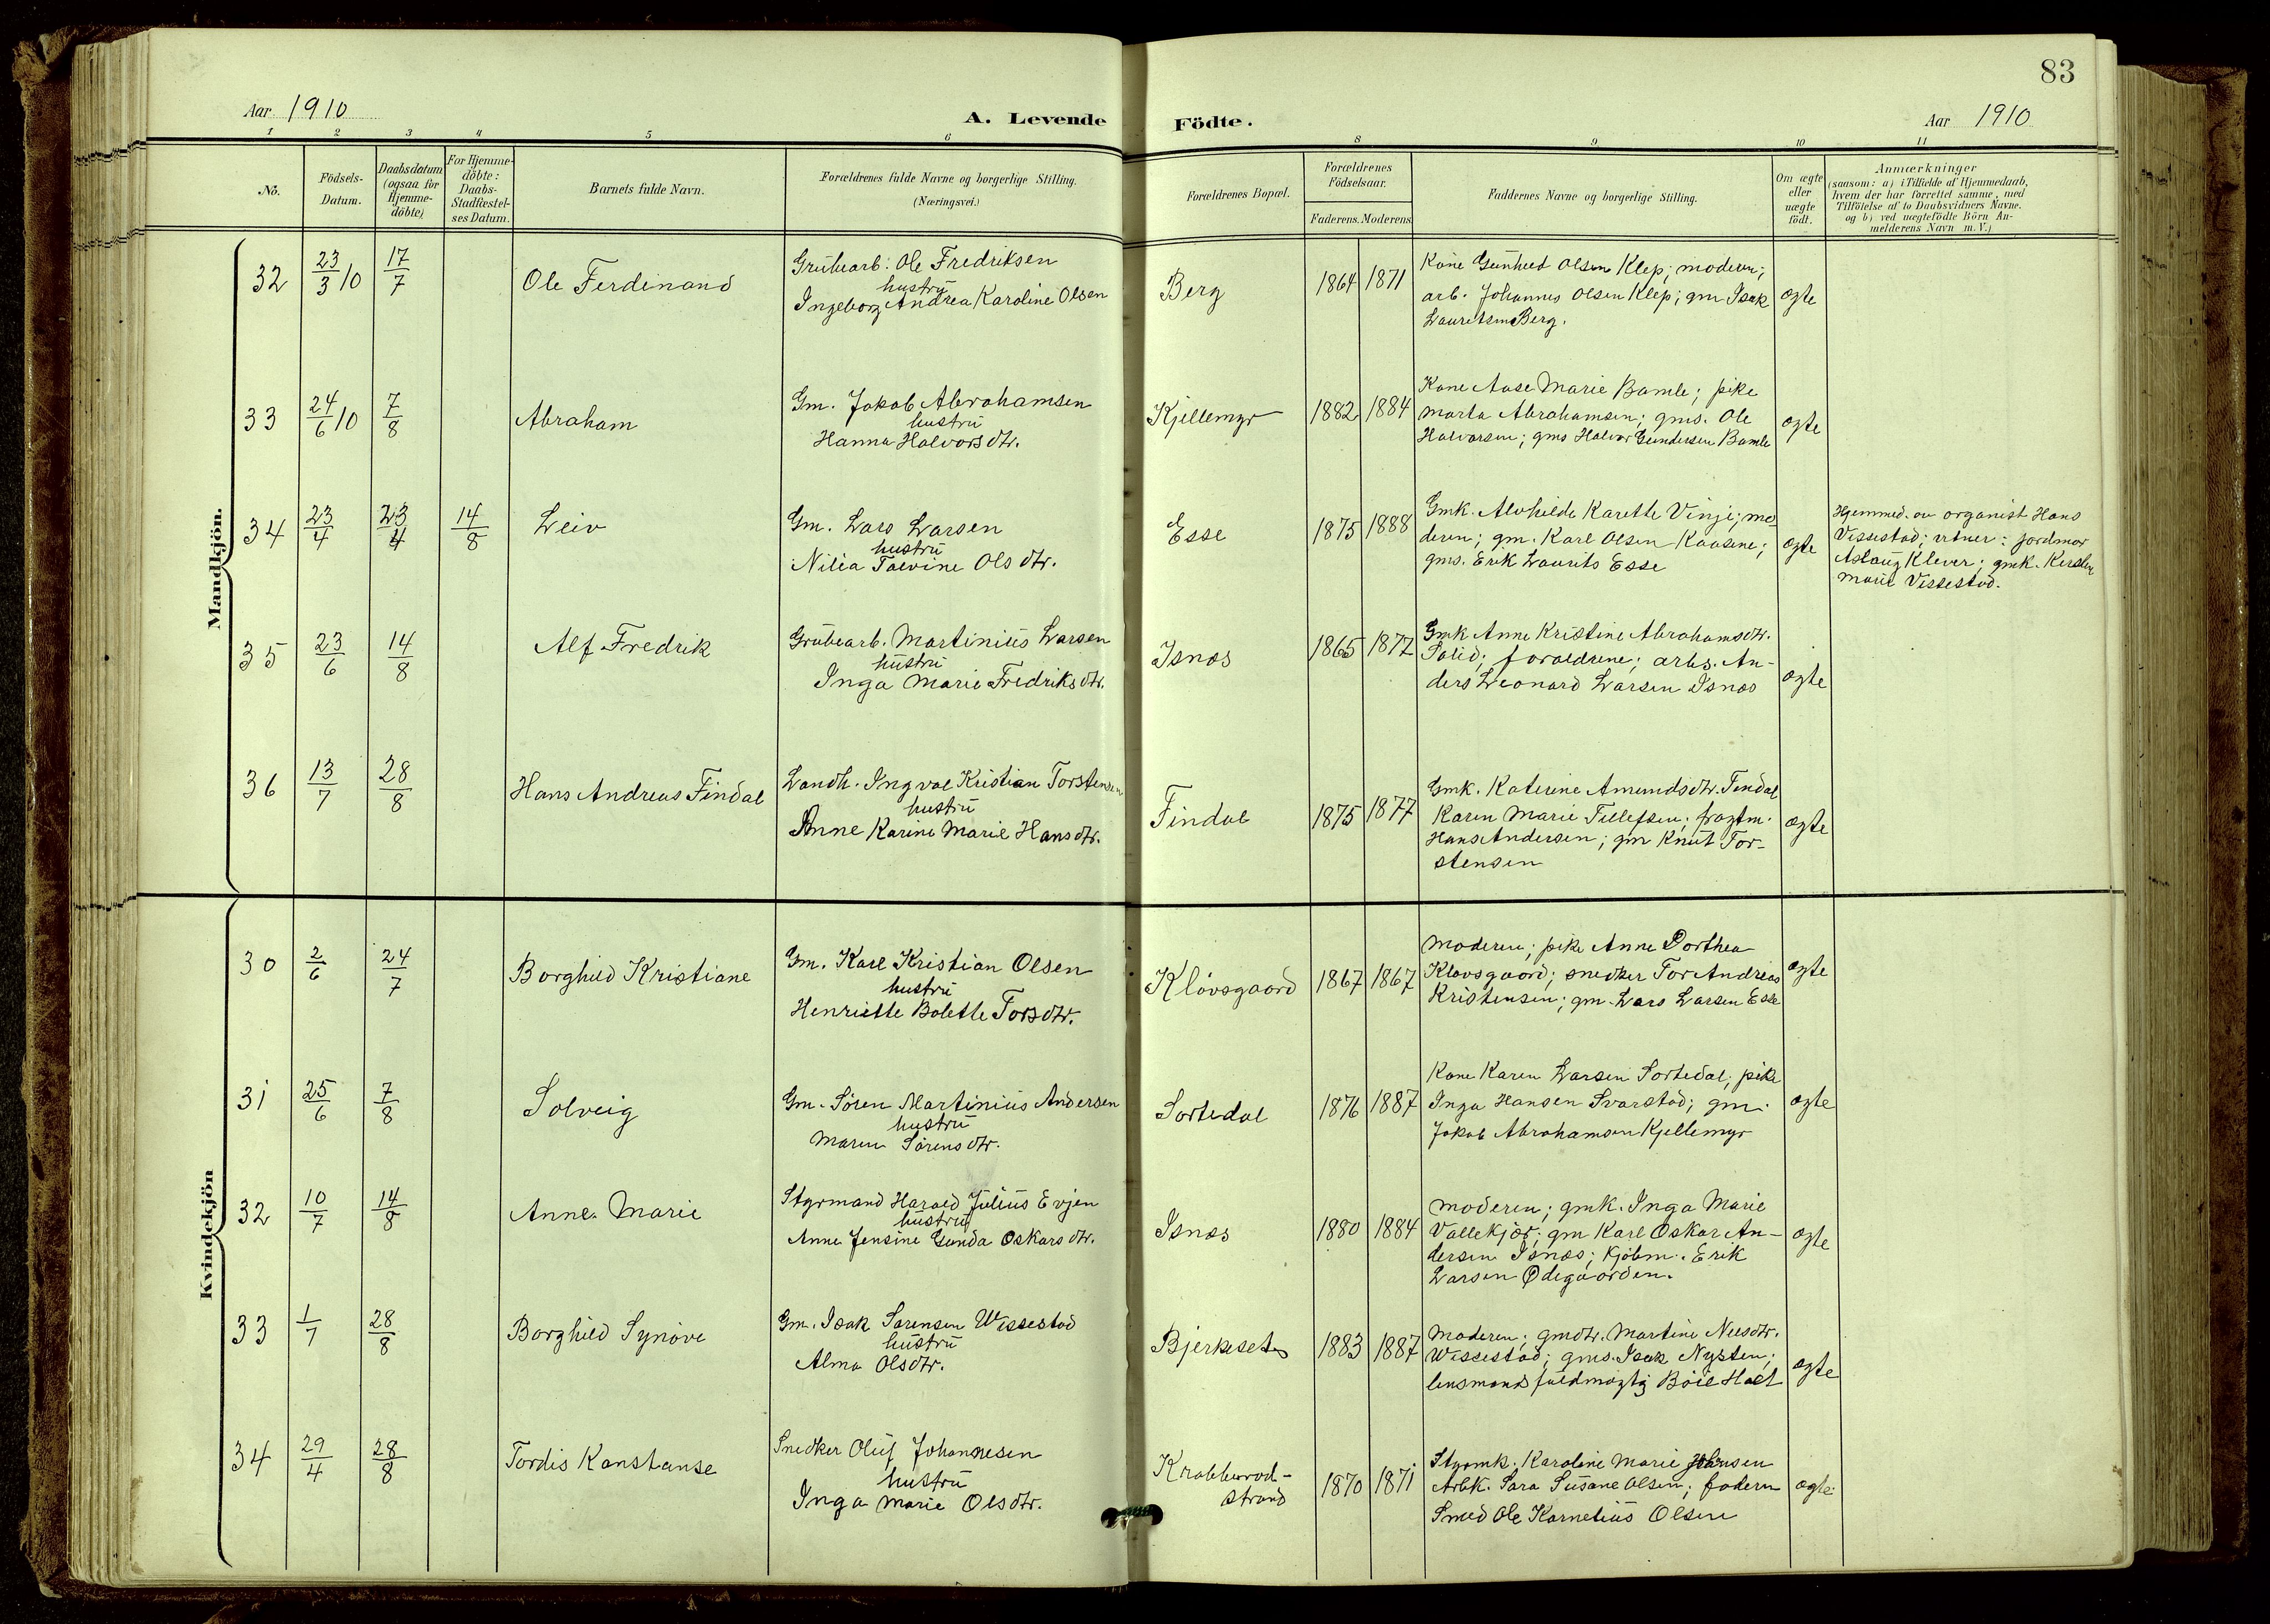 83
Aar 1910
A. Levende Födte.
Aar 1910
1 2 3 4 5 6 8 9 10 11
No.
Födsels-
Datum.
Daabsdatum
(ogsaa for
Hjemme-
döbte)
For Hjemme-
döbte:
Daabs-
Stadfæstel-
ses Datum.
Barnets fulde Navn.
Forældrenes fulde Navne og borgerlige Stilling.
(Næringsvei.)
Forældrenes Bopæl.
Forældrenes
Födselsaar.
Faderens. Moderens
Faddernes Navne og borgerlige Stilling.
Om ægte
eller
uægte
födt.
Anmærkninger
(saasom: a) i Tilfælde af Hjemmedaab,
hvem der har forrettet samme, med
Tilföielse af to Daabsvidners Navne.
og b) ved uægtefödte Börn An-
melderens Navn m. V.)
Mandkjön.
32
23/3 10
17/7
Ole Ferdinand
Grubearb. Ole Fredriksen
hustru
Ingeborg Andrea Karoline Olsen
Berg
1864 1871
Kone Gunhild Olsen Klep; moderen;
arb. Johannes Olsen Klep; gm Isak
Lauritsen Berg.
ægte
33
24/6 10
7/8
Abraham
Gm. Jakob Abrahamsen
hustru
Hanna Halvorsdtr.
Kjellemyr
1882 1884
Kone Aase Marie Bamle; pike
Marta Abrahamsen; gms. Ole
Halvorsen; gms Halvor Gundersen Bamle
ægte
34
23/4
23/4
14/8
Leiv
Gm. Lars Larsen
hustru
Nilia Talvine Olsdtr.
Esse
1875 1888
Gmk. Alvhilde Karette Vinje; mo-
deren; gm. Karl Olsen Kaasene;
gms. Erik Laurits Esse
ægte
Hjemmed. av organist Hans
Vissestad; vitner: jordmor
Aslaug Klever; gmk. Kirstine
Marie Vissestad.
35
23/6
14/8
Alf Fredrik
Grubearb. Martinius Larsen
hustru
Inga Marie Fredriksdtr.
Isnæs
1865 1877
Gmk Anne Kristine Abrahamsdtr.
Valid; forældrene; arbs. An-
ders Leonard Larsen Isnæs
ægte
36
13/7
28/8
Hans Andreas Findal
Landh. Ingval Kristian Torstensen
hustru
Anne Karine Marie Hansdtr.
Findal
1875 1877
Gmk. Katerine Amundsdtr. Findal
Karen Marie Tellefsen; fragtm.
Hans Andersen; gm Knut Tor-
stensen
ægte
Kvindekjön
30
2/6
24/7
Borghild Kristiane
Gm. Karl Kristian Olsen
hustru
Henriette Bolette Torsdtr.
Kløvsgaard
1867 1867
Moderen; pike Anne Dorthea
Kløvsgaard; snedker Tor Andreas
Kristensen; gm. Lars Larsen Esse
ægte
31
25/6
7/8
Solveig
Gm. Søren Martinius Andersen
hustru
Maren Sørensdtr.
Sortedal
1876 1887
Kone Karen Larsen Sortedal; pike
Inga Hansen Svarstad; gm.
Jakob Abrahamsen Kjellemyr
ægte
32
10/7
14/8
Anne Marie
Styrmand Harald Julius Evjen
hustru
Anne Jensine Gunda Oskarsdtr.
Isnæs
1880 1884
Moderen; gmk. Inga Marie
Vallekjær; gm Karl Oskar An-
dersen Isnæs; kjøbm. Erik
Larsen Ødegaarden.
ægte
33
1/7
28/8
Borghild Synøve
Gm. Isak Sørensen Wissestad
hustru
Alma Olsdtr.
Bjerkeset
1883 1887
Moderen; gmdtr. Martine Nilsdtr.
Wissestad; gms. Isak Nysten;
lensmandsfuldmægtig Böie Holt
ægte
34
29/4
28/8
Tordis Konstanse
Snedker Oluf Johannesen
hustru
Inga Marie Olsdtr.
Krabberød-
strand
1870 1871
Styrmk. Karoline Marie Johnsen
Arbk. Sara Susane Olsen; faderen
Smed Ole Kornelius Olsen
ægte